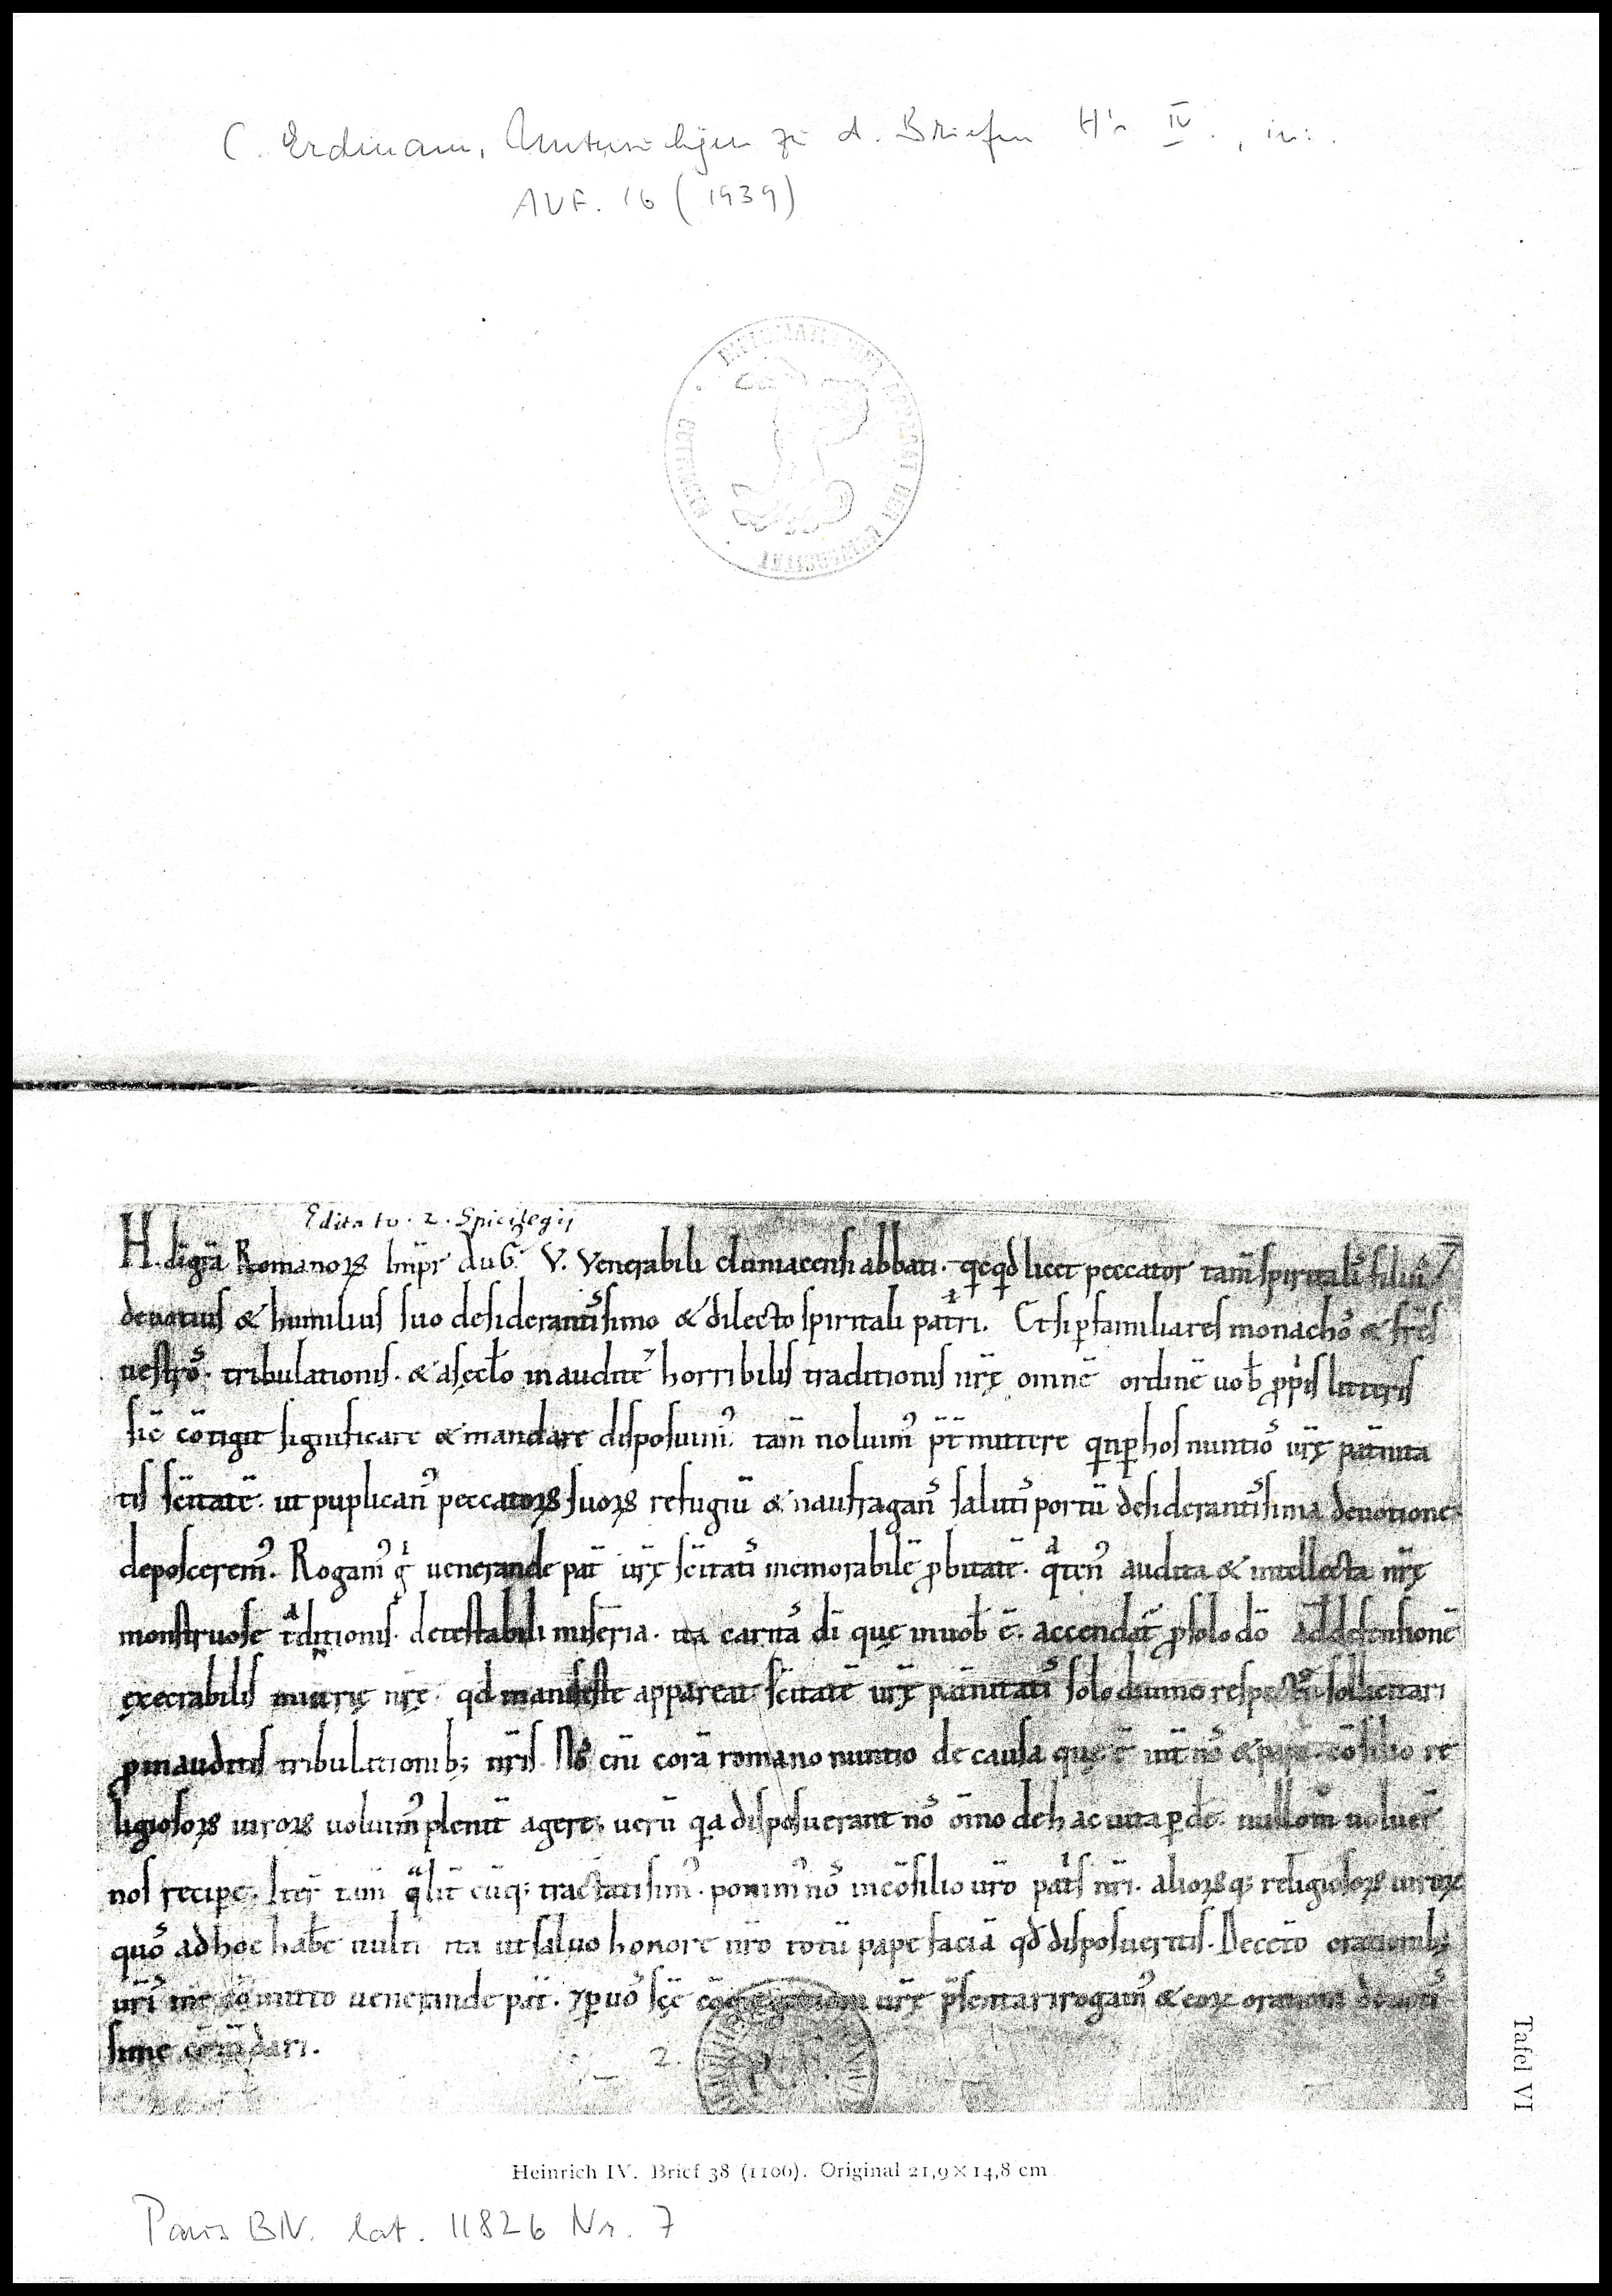 C. Erdmann, Untersuchungen zu d. Briefen H's IV., in:
AUF. 16 (1939)
DIPLOMATISCHER APPARAT DER UNIVERSITÄT GÖTTINGEN
Edita to. 2. Spicilegij
H. dī gr̄a Romanoꝝ Imp̄r AuG. V. Venerabili cluniacensi abbati. qͥcqͥd licet peccator tam̄ spiritalis filius 7
deuotius & humilius suo desiderantissimo & dilecto spiritali patri. Etsi ꝑ familiares monachos & fr̄es
uestros. tribulationis. & a sc̄lo inauditę horribilis traditionis nr̄ę omnē ordinē uob̄ ꝓpͥis litteris
sic̄ cōtigit significare & mandare disposuim᷒. tam̄ noluim᷒ p̄t̄mittere qͥn ꝑ hos nuntios ur̄ę pat̄nita
tis sc̄itatē. ut puplican᷒ peccatoꝝ suoꝝ refugiū & naufragan᷒ salutis portū desiderantissima deuotione
deposcerem᷒. Rogam᷒ gͥ uenerande pat̄ ur̄ę sc̄itatis memorabilē ꝓbitatē. qͣten᷒ audita & intellecta nr̄ę
monstruosę tͣditionis detestabili miseria. ita caritas dī quę in uob̄ ē. accendat̄ ꝓ solo dō ad defensionē
execrabilis iniurię nr̄ę. qd manifeste appareat sc̄itatē ur̄ę pat̄nitatis solo diuino respectu sollicitari
ꝓ inauditis tribulationib; nr̄is. Nos eni̅ corā romano nuntio de causa quę ē int̄ nos & papā. cōsilio re
ligiosoꝝ uiroꝝ uoluim᷒ plenit̄ agere; uerū qͥa disposuerant nos om̄ino de hac uita ꝑdere. nullom̄ uoluer̄
nos recipe. Iter̄ tam̄ qͣlit̄cūq; tractati sim᷒. ponim᷒ nos in cōsilio ur̄o patͥs nr̄i. alioꝝq; religiosoꝝ uiroꝝ
quos ad hoc hab̄e uultis ita ut saluo honore nr̄o totū papę faciā qd̄ disposueritis. De cet̄o orationib;
ur̄is me cōmitto uenerande pat̄. ⁊ ꝑ uos sc̄ę cōgregationi ur̄ę p̄sentari rogam᷒ & eoꝝ orationi deuotis
sime cōm̄dari.
2.
R.F.
Tafel VI
Heinrich IV. Brief 38 (1106). Original 21,9×14,8 cm
Paris BN. lat. 11826 Nr. 7